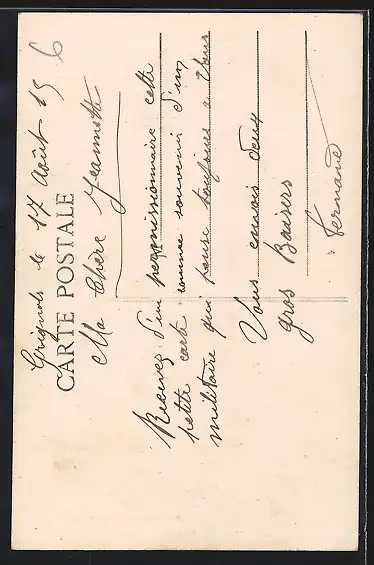 Grignols le 17 Août 15
CARTE POSTALE
Ma Chère Jeannette
Recevez d'un permissionnaire cette
petite carte comme souvenir d'un
militaire qui pense toujours a Vous
Vous envois deux
gros Baisers
Fernand
6